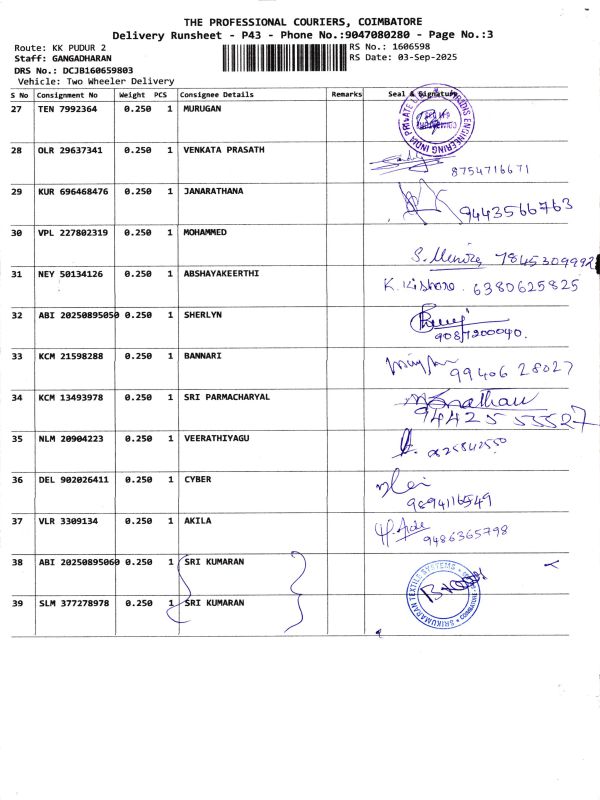 THE PROFESSIONAL COURIERS, COIMBATORE
Delivery Runsheet - P43 - Phone No.:9047080280 - Page No.:3
Route: KK PUDUR 2 RS No.: 1606598
Staff: GANGADHARAN RS Date: 03-Sep-2025
DRS No.: DCJB160659803
Vehicle: Two Wheeler Delivery
S No Consignment No Weight PCS Consignee Details Remarks Seal & Signature
27 TEN 7992364 0.250 1 MURUGAN
28 OLR 29637341 0.250 1 VENKATA PRASATH
8754716671
29 KUR 696468476 0.250 1 JANARATHANA
9443566763
30 VPL 227802319 0.250 1 MOHAMMED
7845309992
31 NEY 50134126 0.250 1 ABSHAYAKEERTHI
K. Kishore. 6380625825
32 ABI 20250895050 0.250 1 SHERLYN
9087200040.
33 KCM 21598288 0.250 1 BANNARI
99406 28027
34 KCM 13493978 0.250 1 SRI PARMACHARYAL
94425 53527
35 NLM 20904223 0.250 1 VEERATHIYAGU
36 DEL 902026411 0.250 1 CYBER
9894116549
37 VLR 3309134 0.250 1 AKILA
9486365798
38 ABI 20250895060 0.250 1 SRI KUMARAN
39 SLM 377278978 0.250 1 SRI KUMARAN
SRIKUMARAN TEXTILE SYSTEMS